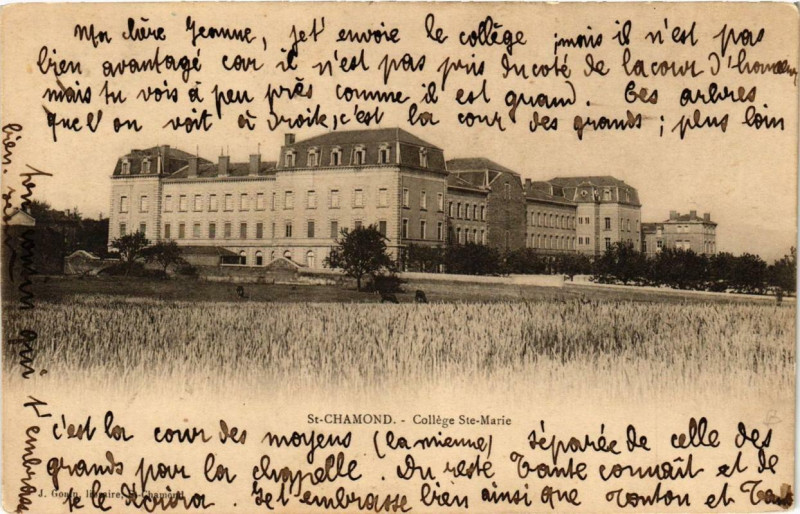 Ma chère Jeanne, je t'envoie le collège ; mais il n'est pas
bien avantagé car il n'est pas pris du coté de la cour d'honneur
mais tu vois à peu près comme il est grand. Ces arbres
que l'on voit à droite, c'est la cour des grands ; plus loin
St-CHAMOND. - Collège Ste-Marie
c'est la cour des moyens (la mienne) séparée de celle des
grands par la chapelle. Du reste Tante connaît et de
J. Gouin, libraire, St-Chamond
te le dira. Je t'embrasse bien ainsi que Tonton et Tante
ton qui t'embrasse
bien.